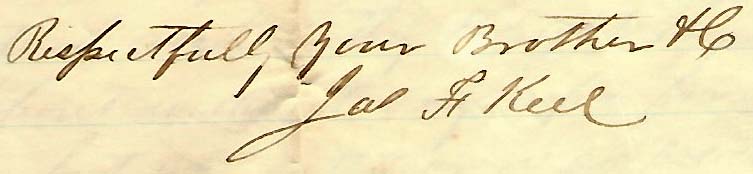 Respectfully Your Brother &C
Jas F Keel